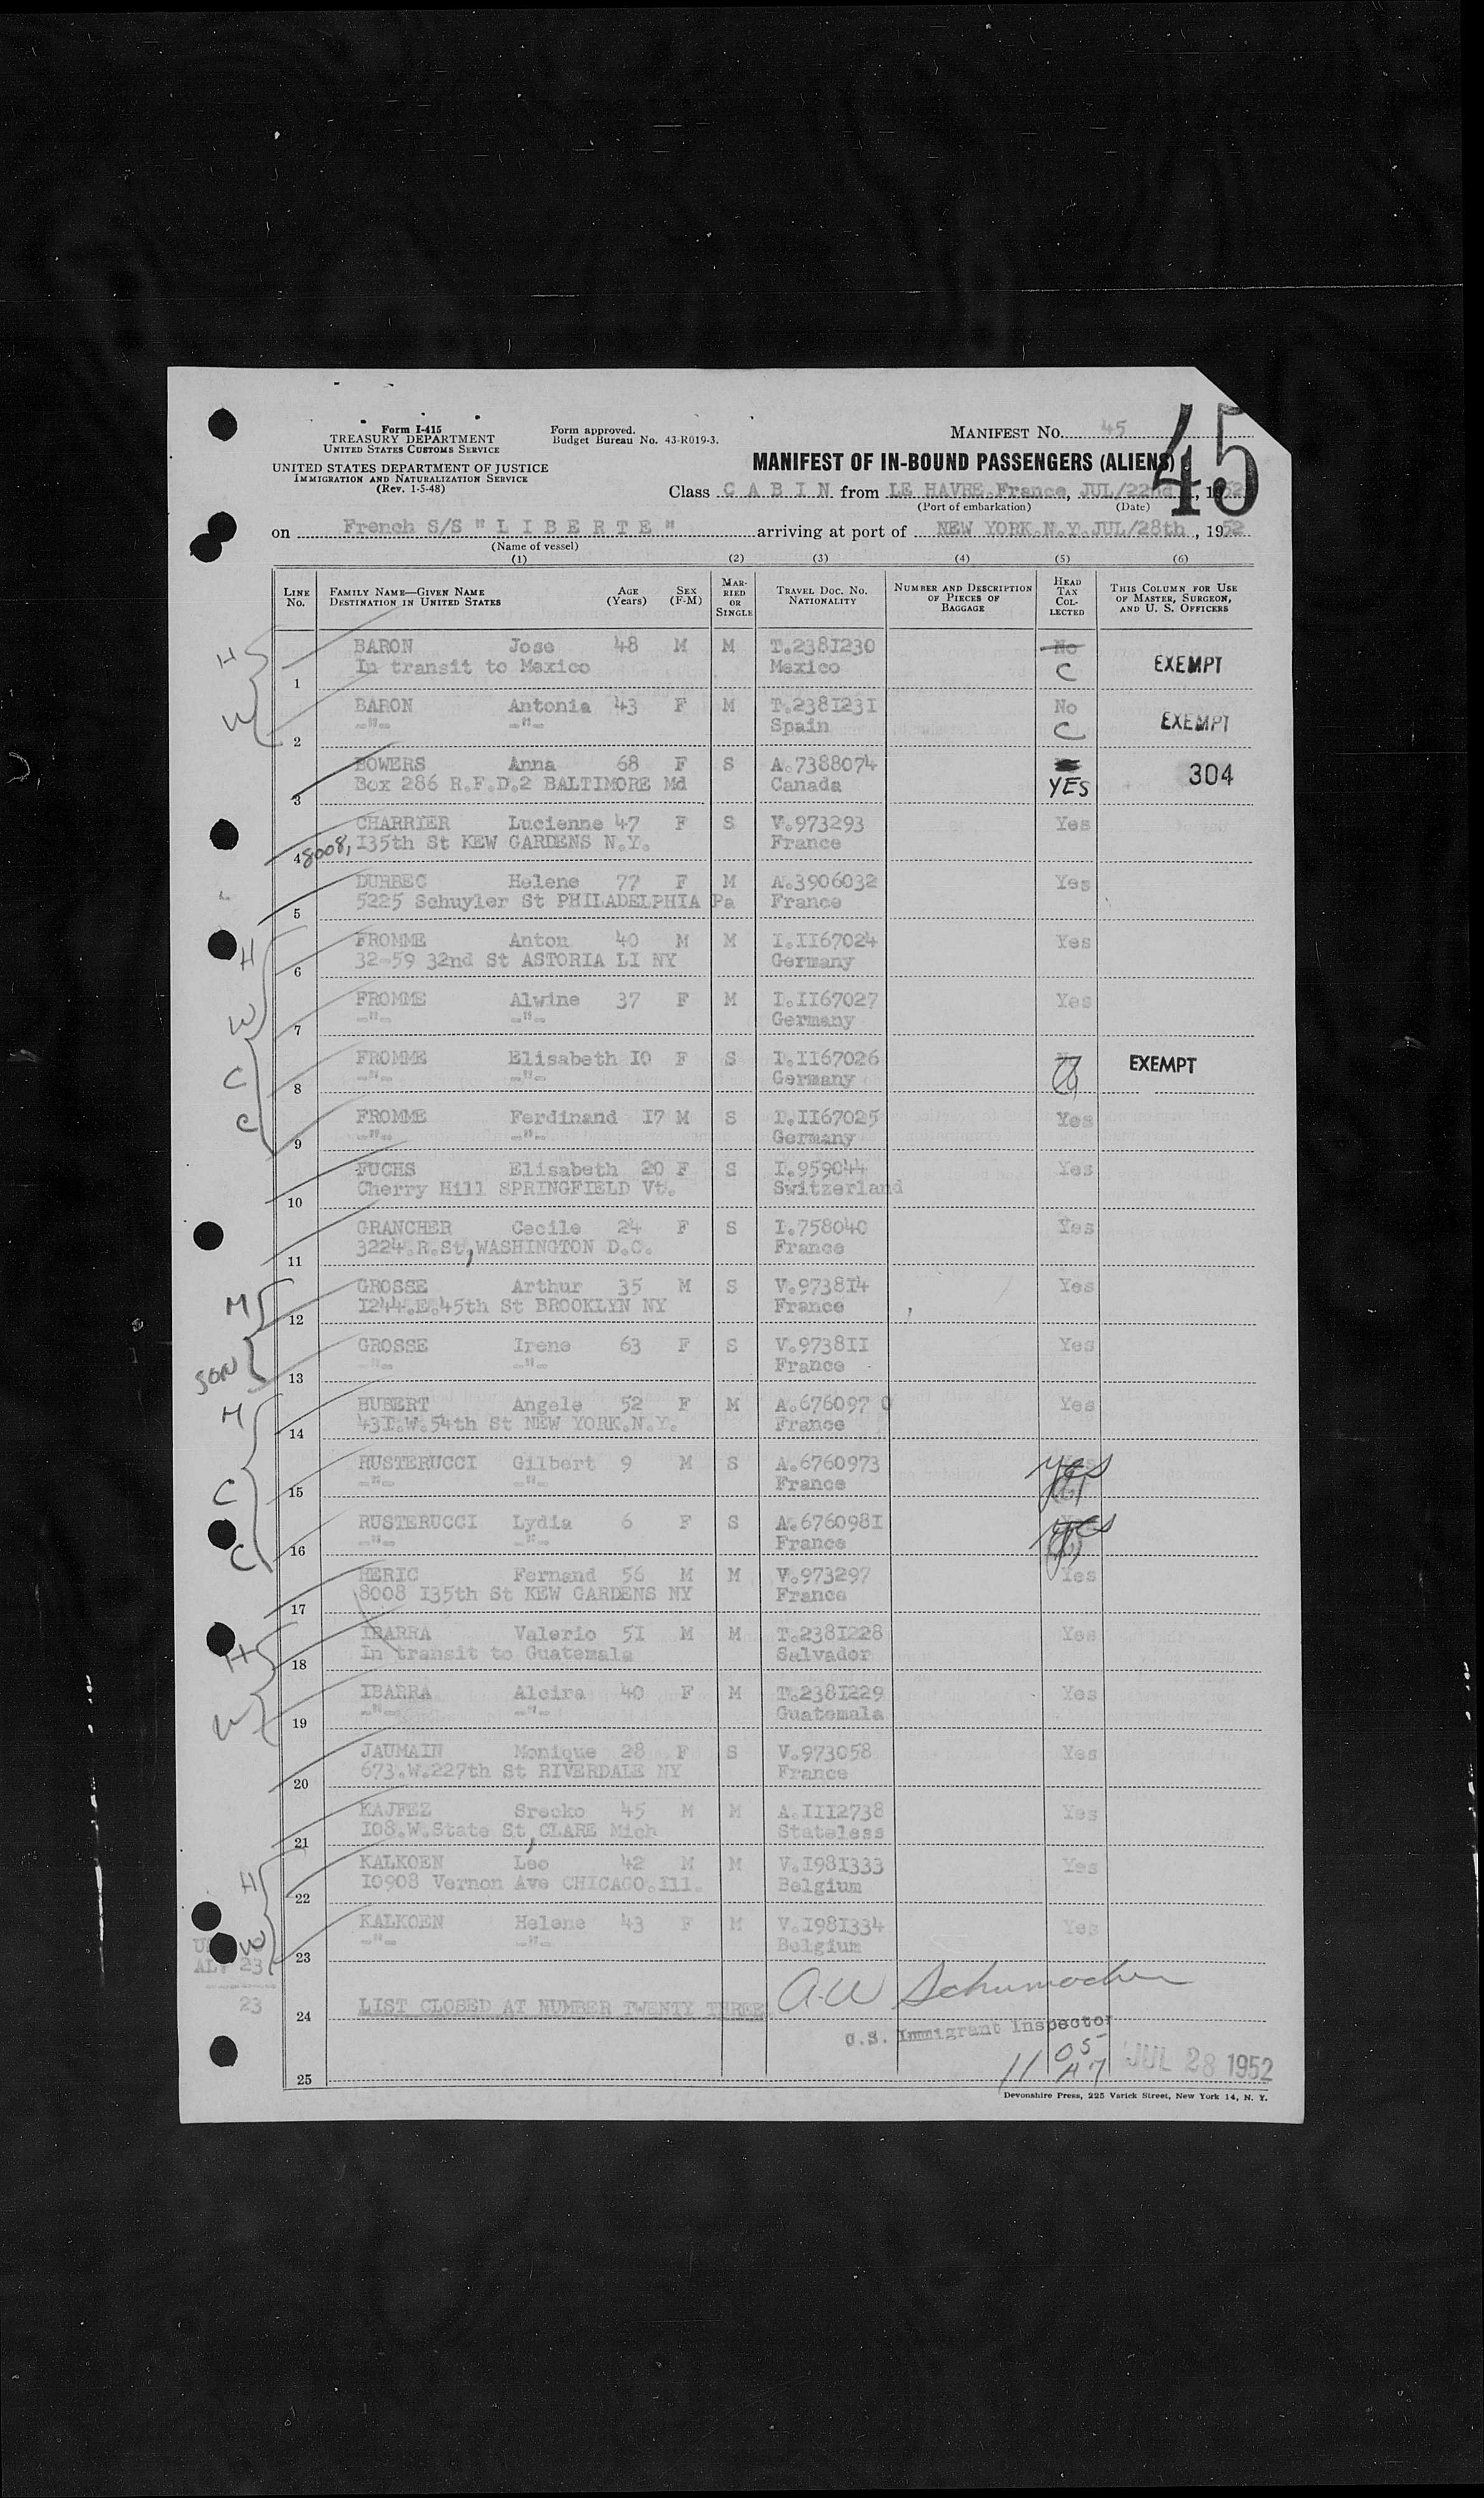 Form I-415
TREASURY DEPARTMENT
UNITED STATES CUSTOMS SERVICE
UNITED STATES DEPARTMENT OF JUSTICE
IMMIGRATION AND NATURALIZATION SERVICE
(Rev. 1-5-48)
Form approved.
Budget Bureau No. 43-R019-3.
MANIFEST No. 45
45
MANIFEST OF IN-BOUND PASSENGERS (ALIENS)
Class C A B I N from LE HAVRE.France, JUL/22nd, 1952
(Port of embarkation) (Date)
on French S/S " L I B E R T E " arriving at port of NEW YORK.N.Y.JUL/28th, 1952
(Name of vessel)
(1) (2) (3) (4) (5) (6)
LINE No. FAMILY NAME—GIVEN NAME DESTINATION IN UNITED STATES AGE (Years) SEX (F-M) MARRIED OR SINGLE TRAVEL DOC. NO. NATIONALITY NUMBER AND DESCRIPTION OF PIECES OF BAGGAGE HEAD TAX COLLECTED THIS COLUMN FOR USE OF MASTER, SURGEON, AND U. S. OFFICERS
H BARON Jose 48 M M T.238I230 No
1 In transit to Mexico Mexico C EXEMPT
W BARON Antonia 43 F M T.238I23I No
2 -"- -"- Spain C EXEMPT
BOWERS Anna 68 F S A.7388074 304
3 Box 286 R.F.D.2 BALTIMORE Md Canada YES
CHARRIER Lucienne 47 F S V.973293 Yes
4 8008, I35th St KEW GARDENS N.Y. France
DURBEC Helene 77 F M A.3906032 Yes
5 5225 Schuyler St PHILADELPHIA Pa France
H FROMME Anton 40 M M I.II67024 Yes
6 32-59 32nd St ASTORIA LI NY Germany
W FROMME Alwine 37 F M I.II67027 Yes
7 -"- -"- Germany
C FROMME Elisabeth I0 F S I.II67026 EXEMPT
8 -"- -"- Germany
C FROMME Ferdinand I7 M S I.II67025 Yes
9 -"- -"- Germany
FUCHS Elisabeth 20 F S I.959044 Yes
10 Cherry Hill SPRINGFIELD Vt. Switzerland
GRANCHER Cecile 24 F S I.758040 Yes
11 3224.R.St, WASHINGTON D.C. France
M GROSSE Arthur 35 M S V.9738I4 Yes
12 I244.E.45th St BROOKLYN NY France
SON GROSSE Irene 63 F S V.9738II Yes
13 -"- -"- France
M HUBERT Angele 52 F M A.676097 0 Yes
14 43I.W.54th St NEW YORK.N.Y. France
C RUSTERUCCI Gilbert 9 M S A.6760973 yes
15 -"- -"- France
C RUSTERUCCI Lydia 6 F S A.676098I yes
16 -"- -"- France
HERIC Fernand 56 M M V.973297 Yes
17 8008 I35th St KEW GARDENS NY France
H IBARRA Valerio 5I M M T.238I228 Yes
18 In transit to Guatemala Salvador
W IBARRA Alcira 40 F M T.238I229 Yes
19 -"- -"- Guatemala
JAUMAIN Monique 28 F S V.973058 Yes
20 673.W.227th St RIVERDALE NY France
KAJFEZ Srecko 45 M M A.III2738 Yes
21 I08.W.State St, CLARE Mich Stateless
H KALKOEN Leo 42 M M V.I98I333 Yes
22 I0908 Vernon Ave CHICAGO.Ill. Belgium
W KALKOEN Helene 43 F M V.I98I334 Yes
23 -"- -"- Belgium
23
23
24 LIST CLOSED AT NUMBER TWENTY THREE
A.W Schumacher
U.S. Immigrant Inspector
25 JUL 28 1952
Devonshire Press, 225 Varick Street, New York 14, N. Y.